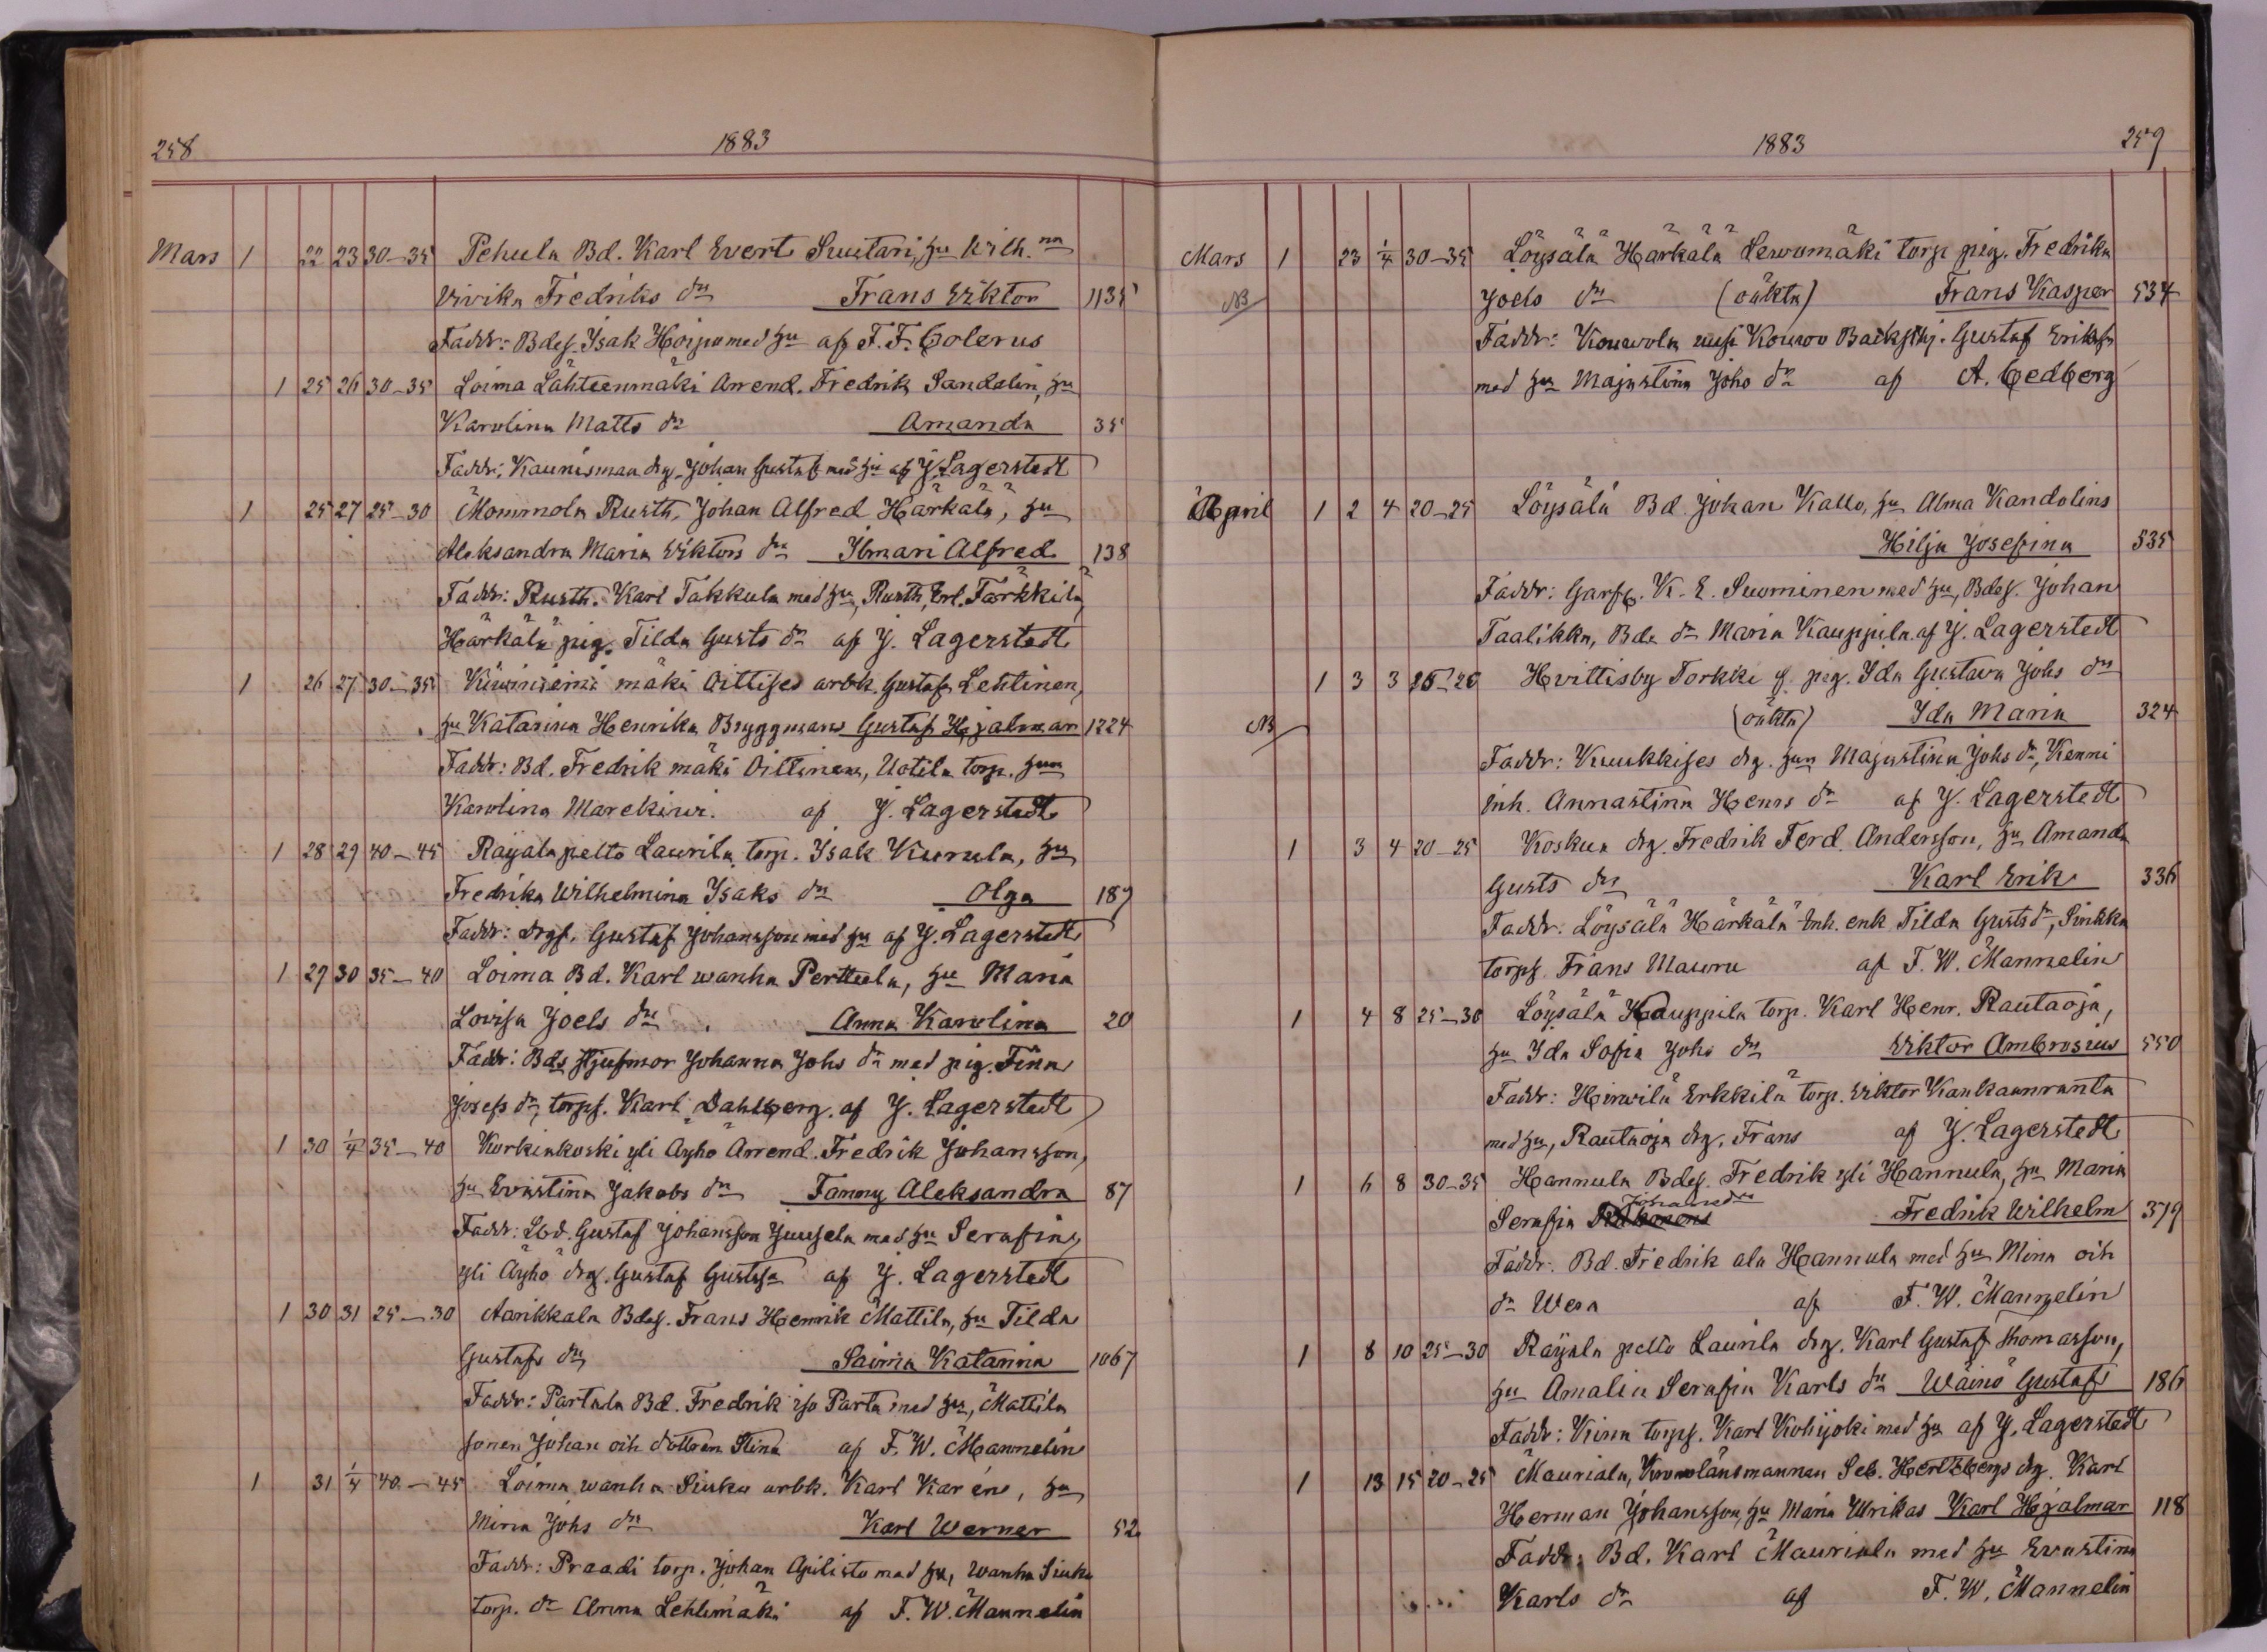 258 1883
Mars 1 22 23 30-35 Pehula Bd. Karl Evert Suutari, hu Wilh.na
Vivika Fredriks dr Frans Viktor 1135
Faddr: Bdes. Isak Hoipo med hu af F. F. Colerus
1 25 26 30-35 Loima Lähteenmäki Arrend. Fredrik Sandelin, hu
Karolina Matts dr Amanda 35
Faddr: Kaunisman drg. Johan Gustaf med hu af J. Lagerstedt
1 25 27 25-30 Mommola Rusth. Johan Alfred Härkälä, hu
Aleksandra Maria Viktors dr Ilmari Alfred 138
Faddr: Rusth. Karl Takkula med hu, Rusth. Erl. Tärkkilä,
Härkälä pig. Tilda Gusts dr af J. Lagerstedt
1 26 27 30-35 mäki Oittises arbk. Gustaf Lehtinen,
hu Katarina Henrika Bryggmans Gustaf Hjalmar 1224
Faddr: Bd. Fredrik mäki Oittinen, Uotila torp. hun
Karolina Marekiwi. af J. Lagerstedt
1 28 29 40-45 Rajala pelto Laurila torp. Isak Kurula, hu
Fredrika Wilhelmina Isaks dr Olga 187
Faddr: drgs. Gustaf Johansson med hu af J. Lagerstedt
1 29 30 35-40 Loima Bd. Karl wanha Perttula, hu Maria
Lovisa Joels dr Anna Karolina 20
Faddr: Bds stjufmor Johanna Johs dr med pig. Fina
Josefs dr, torps. Karl Dahlberg. af J. Lagerstedt
1 30 1/4 35-40 Korkiakoski yli Äyhö Arrend. Fredrik Johansson,
hu Evastina Jakobs dr Fanny Aleksandra 87
Faddr: Lbd. Gustaf Johansson Juusela med hu Serafina,
yli Äyhö drg. Gustaf Gustfsn af J. Lagerstedt
1 30 31 25-30 Aarikkala Bdes. Frans Henrik Mattila, hu Tilda
Gustafs dr Saima Katarina 1067
Faddr: Partala Bd. Fredrik iso Parta med hu, Mattila
sonen Johan och dottren Stina af F. W. Mannelin
1 31 1/4 40-45 Loima wanha Sicku arbk. Karl Karén, hu
Mina Johs dr Karl Werner 52
Faddr: Praadi torp. Johan Apilisto med hu, wanha Sicku
torp. dr Anna Lehtimäki af F. W. Mannelin
1883 259
Mars 1 23 1/4 30-35 Löysälä Härkälä Lewomäki torp pig. Fredrika
NB Joels dr (oäkta) Frans Kasper 534
Faddr: Kouwola uusi Kouwo Backstuj. Gustaf Eriksn
med hu Majastina Joho dr af A. Cedberg
April 1 2 4 20-25 Löysälä Bd. Johan Kallo, hu Alma Kandolins
Hilja Josefina 535
Faddr: Garfv. K. E. Suominen med hu, Bdes. Johan
Taalikka, Bds dr Maria Kauppila af J. Lagerstedt
1 3 3 25-26 Hvittisby Torkki g. pig. Ida Gustava Johs dr
NB (oäkta) Ida Maria 324
Faddr: Kuukkises drg. hun Majastina Johs dr, Kenni
Inh. Annastina Henrs dr af J. Lagerstedt
1 3 4 20-25 Koskua drg. Fredrik Ferd. Andersson, hu Amanda
Gusts dr Karl Erik 336
Faddr. Löysälä Härkälä Inh. enk. Tilda Gusts dr, Sinkka
torps. Frans Mauru af F. W. Mannelin
1 4 8 25-30 Löysälä Kauppila torp. Karl Henr. Rautaoja,
hu Ida Sofia Johs dr Viktor Ambrosius 550
Faddr: Hirwilä Erkkilä torp. Viktor Kankaanranta
med hu, Rautaoja drg. Frans af J. Lagerstedt
1 6 8 30-35 Hannula Bdes. Fredrik yli Hannula, hu Maria
Serafia Johans dr Fredrik Wilhelm 379
Faddr. Bd. Fredrik ala Hannula med hu Mina och
dr Wera af F. W. Mannelin
1 8 10 25-30 Rajala pelto Laurila drg. Karl Gustaf Thomasson,
hu Amalia Serafia Karls dr Wäinö Gustaf 186
Faddr: Kinna torps. Karl Kohijoki med hu af J. Lagerstedt
1 13 15 20-25 Mauriala, Kronolänsmannen Seb. Hertzbergs drg. Karl
Herman Johansson, hu Maria Ulrikas Karl Hjalmar 118
Faddr: Bd. Karl Mauriala med hu Evastina
Karls dr af F. W. Mannelin